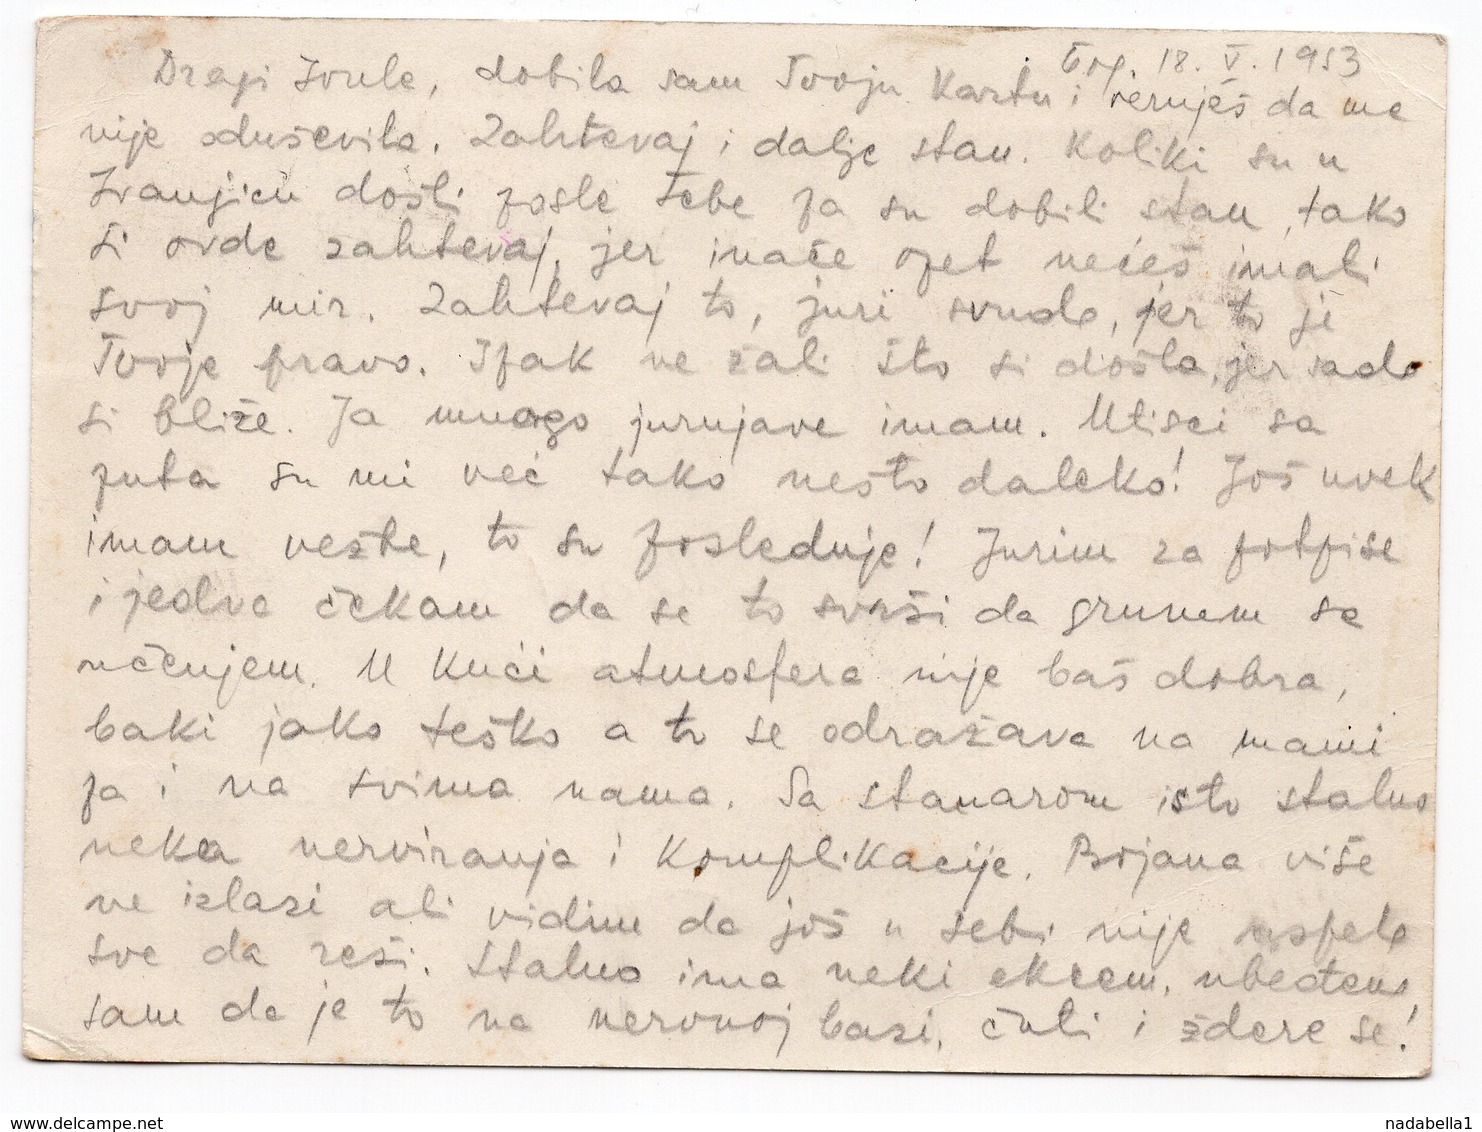 Bgd. 18. V. 1953
Dragi Ivule, dobila sam Tvoju kartu i veruješ da me
nije oduševila. Zahtevaj i dalje stan. Koliki su u
Ivanjicu došli posle Tebe pa su dobili stan, tako
si ovde zahtevaj, jer inače opet nećeš imati
svoj mir. Zahtevaj to, juri svuda, jer to je
Tvoje pravo. Ipak ne žali što si došla, jer sada
si bliže. Ja mnogo jurnjave imam. Utisci sa
puta su mi već tako nešto daleko! Još uvek
imam vežbe, to su poslednje! Jurim za potpise
i jedva čekam da se to svrši da grunem sa
učenjem. U kući atmosfera nije baš dobra,
baki jako teško a to se odražava na mami
pa i na svima nama. Sa stanarom isto stalno
neka nerviranja i komplikacije. Bojana više
ne izlazi ali vidim da još u sebi nije uspela
sve da reši. Stalno ima neki ekcem, ubeđena
sam da je to na nervnoj bazi, ćuti i ždere se!
nadabella1